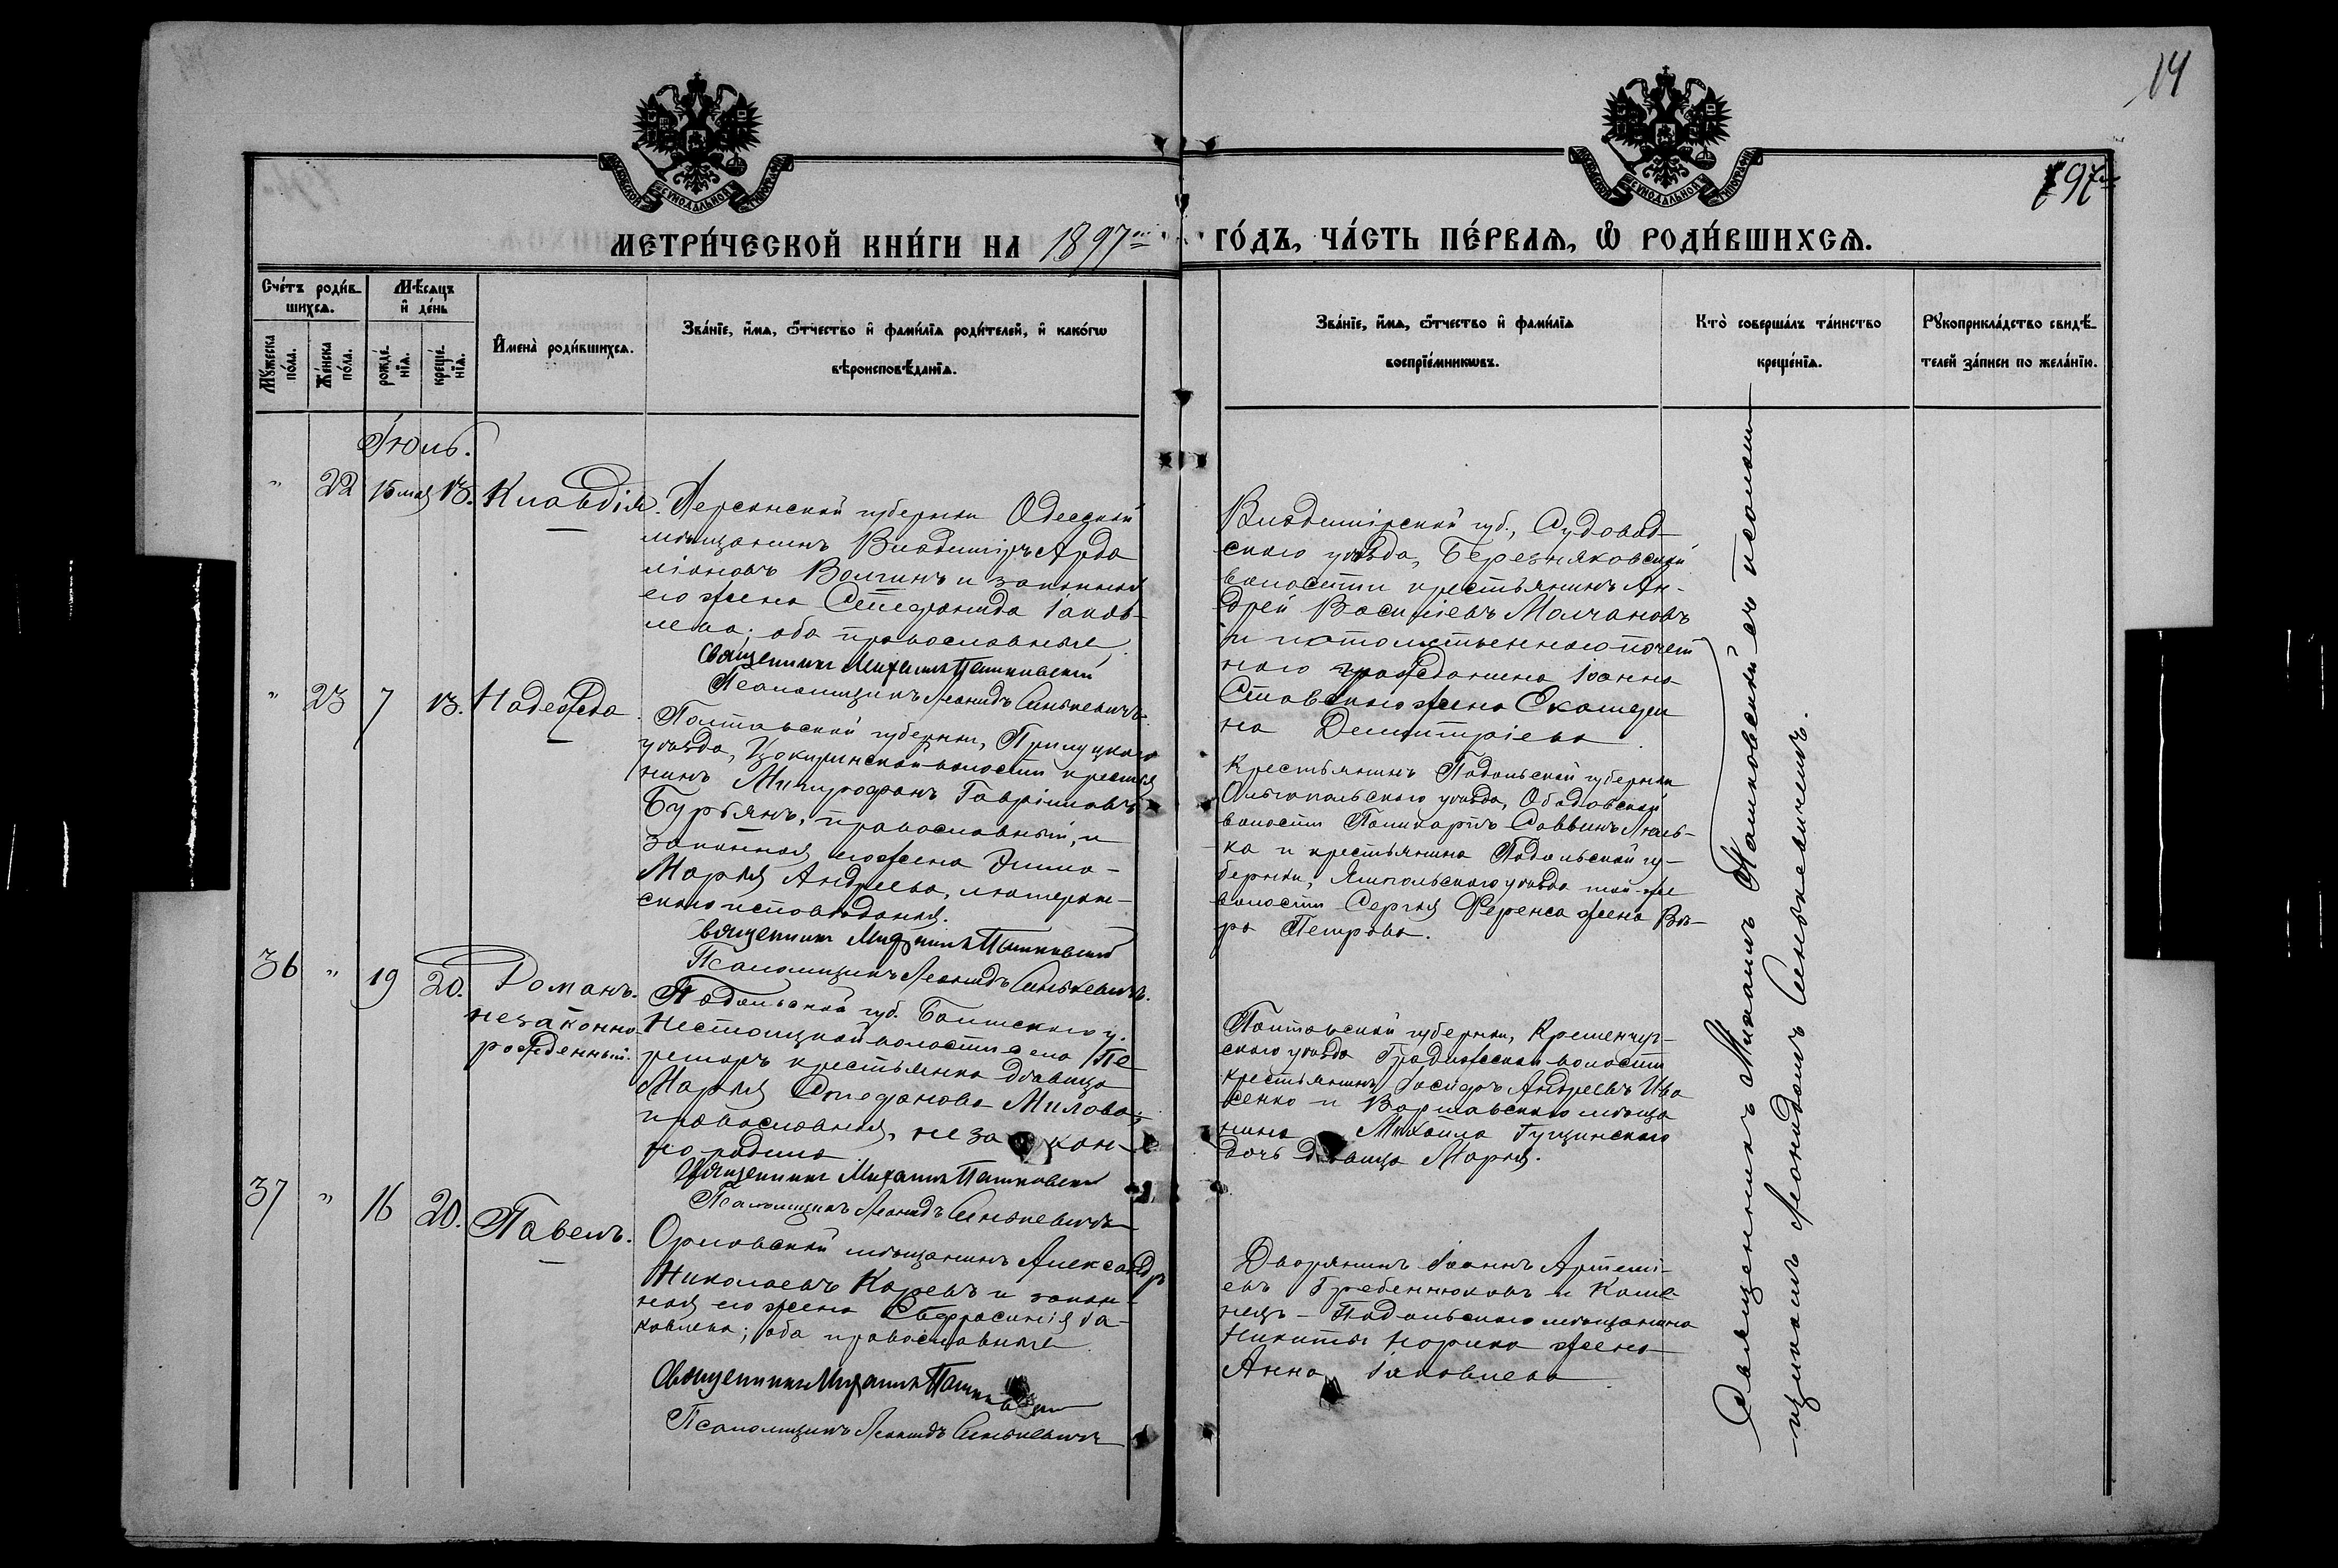 14
897
МЕТРИ́ЧЕСКОЙ КНИ́ГИ НА 1897 ГО́ДЪ, ЧА́СТЬ ПЕ́РВАѦ, Ѡ҆ РОДИ́ВШИХСѦ.
Сче́тъ роди́в-
шихсѧ.
Му́жеска по́ла.
Же́нска по́ла.
Мѣ́сѧцъ
и҆ де́нь
рожде́-
нїѧ.
креще́-
нїѧ.
И҆мена̀ роди́вшихсѧ.
Зва́нїе, и҆́мѧ, ѻ҆́тчество и҆ фами́лїѧ роди́телей, и҆ како́гѡ
вѣроисповѣ́данїѧ.
Зва́нїе, и҆́мѧ, ѻ҆́тчество и҆ фами́лїѧ
воспрїе́мникѡвъ.
Кто̀ соверша́лъ та́инство
креще́нїѧ.
Рꙋкоприкла́дство свидѣ́-
телей за́писи по жела́нїю.
Іюль.
" 22 15 мая 13. Клавдія.
Херсонской губерніи Одесскій
мѣщанинъ Владиміръ Арда
ліоновъ Волгинъ и законная
его жена Стефанида Іаков-
лева; оба православные.
Священникъ Михаилъ Пашковскій
Псаломщикъ Леонидъ Синькевичъ.
Владимірской губ., Судогод-
скаго уѣзда, Березняковской
волости крестьянинъ Ан-
дрей Василіевъ Молчановъ
и потомственнаго почет
наго гражданина Іоанна
Ставскаго жена Екатери
на Димитріева.
" 23 7 13. Надежда
Полтавской губерніи, Прилуцкаго
уѣзда, волости крестья
нинъ Митрофанъ Гавріиловъ
Бурьянъ, православный, и
законная его жена Эмма-
Марія Андреева, лютеран-
скаго исповѣданія.
Священникъ Михаилъ Пашковскій
Псаломщикъ Леонидъ Синькевичъ.
Крестьянинъ Подольской губерніи
Ольгопольскаго уѣзда, Ободовской
волости Поликарпъ Саввинъ Люль-
ка и крестьянина Подольской гу-
берніи, Ямпольскаго уѣзда той-же
волости Сергія Ференса жена Вѣ-
ра Петрова.
36 " 19 20. Романъ.
незаконно-
рожденный.
Подольской губ. Балтскаго у.
Нестоицкой волости села Пе
решоръ крестьянка дѣвица
Марія Стефанова Милова;
православная, незакон-
но родила
Священникъ Михаилъ Пашковскій
Псаломщикъ Леонидъ Синькевичъ
Полтавской губерніи, Кременчуг-
скаго уѣзда Градижской волости
крестьянинъ Іосифъ Андреевъ Ива
сенко и Варшавскаго мѣща
нина Михаила Гущинскаго
дочь дѣвица Марія.
37 " 16 20. Павелъ.
Орловскій мѣщанинъ Александръ
Николаевъ Каревъ и закон-
ная его жена Евфросинія Іа-
ковлева; оба православные.
Священникъ Михаилъ Пашковскій
Псаломщикъ Леонидъ Синькевичъ
Дворянинъ Іоаннъ Артемі-
евъ Гребенюковъ и Каме
нецъ-Подольскаго мѣщанина
Никиты Норика жена
Анна Іаковлева.
Священникъ Михаилъ Пашковскій съ псалом-
щикомъ Леонидомъ Синькевичемъ.